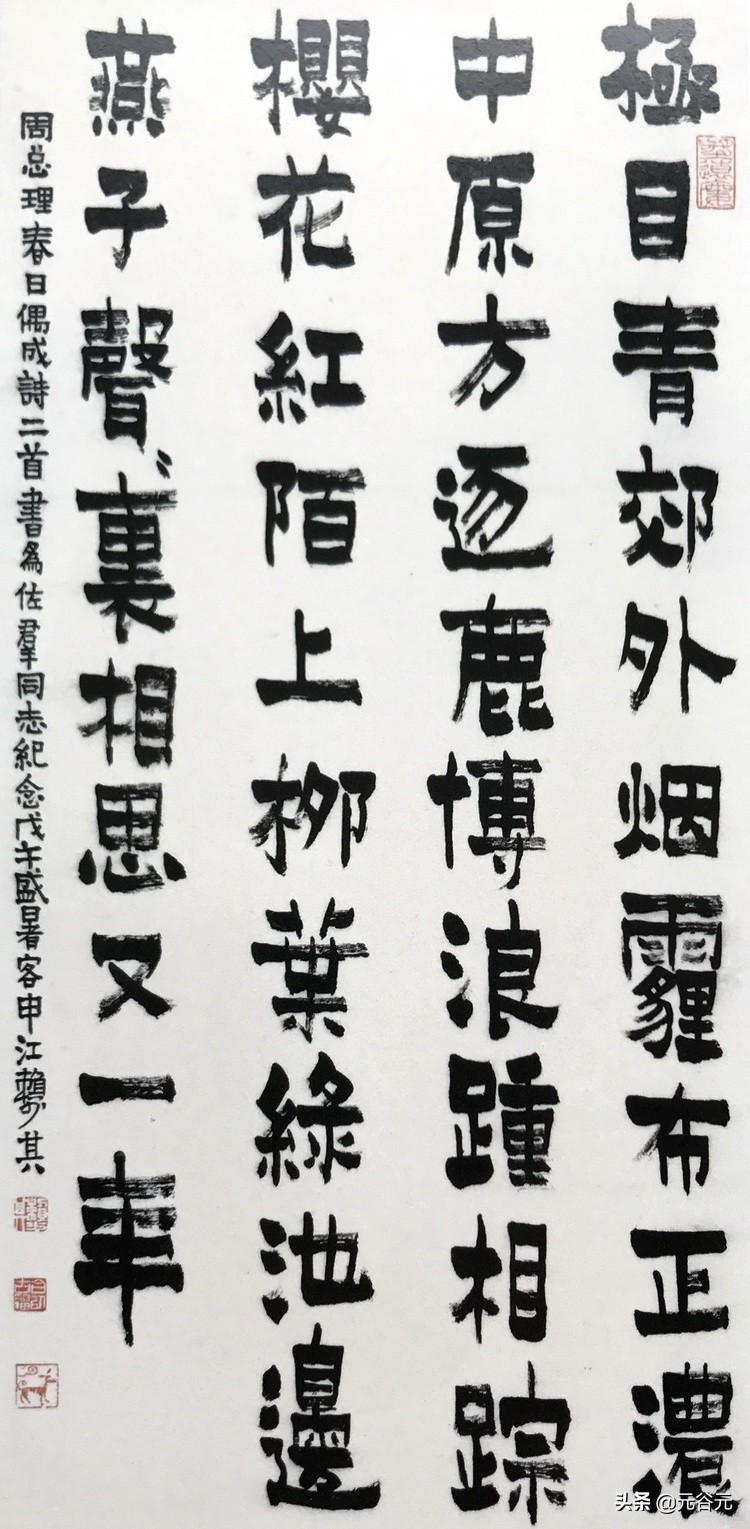 極目青郊外烟霾布正濃
中原方逐鹿博浪踵相踪
櫻花紅陌上柳葉綠池邊
燕子聲〻裏相思又一年
周总理春日偶成詩二首書為佐羣同志紀念戊午盛暑客申江賴少其
头条 @元谷元